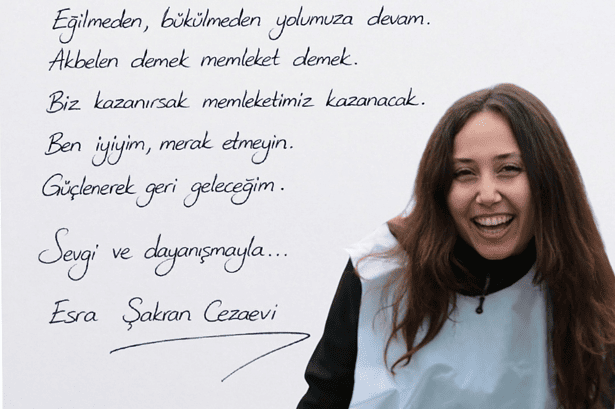 Eğilmeden, bükülmeden yolumuza devam.
Akbelen demek memleket demek.
Biz kazanırsak memleketimiz kazanacak.
Ben iyiyim, merak etmeyin.
Güçlenerek geri geleceğim.
Sevgi ve dayanışmayla...
Esra Şakran Cezaevi